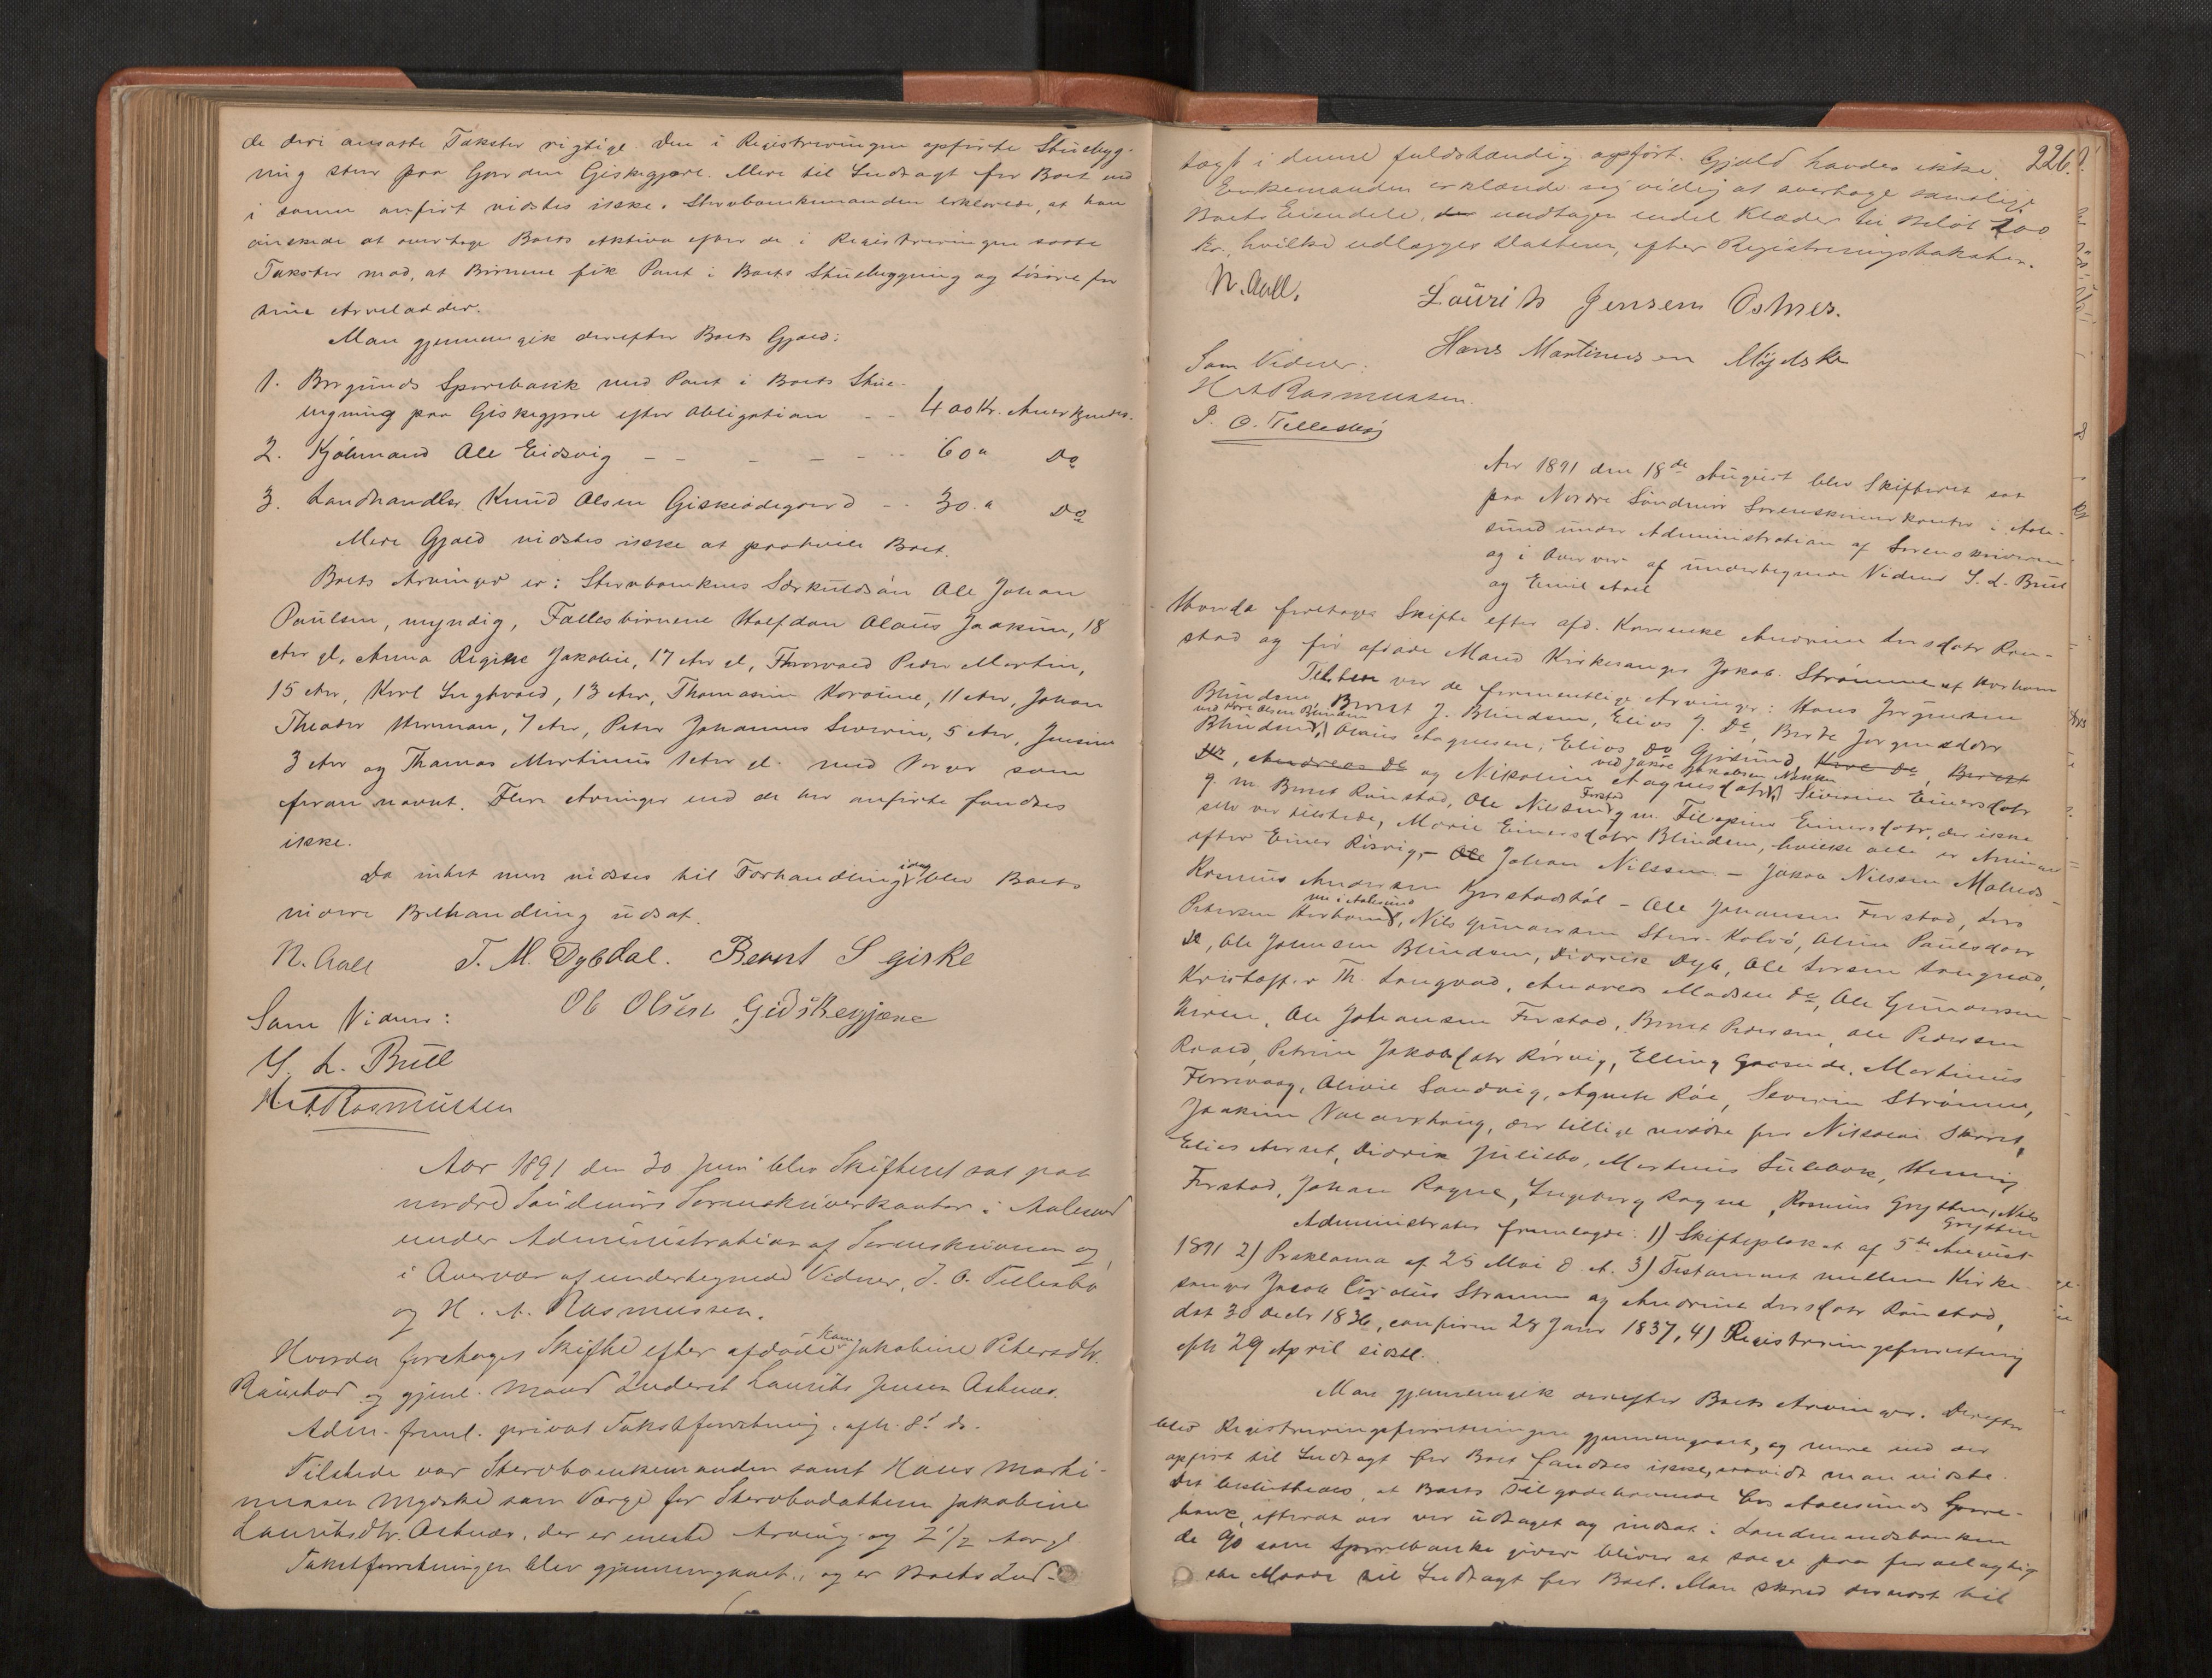 de deri ansatte Takster rigtige. Den i Registreringen opførte Stuebyg-
ning staar paa Gaarden Giskegjære. Mere til Indtægt for Boet end
i samme anført vidstes ikke. Stervboenkemanden erklærede, at han
ønskede at overtage Boets Aktiva efter de i Registreringen satte
Takster mod, at Børnene fik Pant i Boets Stuebygning og Løsøre for
sine Arvelodder.
Man gjennemgik derefter Boets Gjæld:
1. Borgunds Sparebank med Pant i Boets Stue-
bygning paa Giskegjære efter Obligation - - 400 Kr. Anerkjendes.
2. Kjøbmand Ole Eidsvig - - - - - - 60 " Do
3. Landhandler Knud Olsen Giskeødegaard - - 30 " Do
Mere Gjæld vidstes ikke at paahvile Boet.
Boets Arvinger er: Stervboenkens Særkuldsøn Ole Johan
Paulsen, myndig, Fællesbørnene Halfdan Olaus Joakim, 18
Aar gl, Anna Regine Jakobie, 17 Aar gl, Thorvald Peder Martin,
15 Aar, Karl Ingvald, 13 Aar, Thomasine Karoline, 11 Aar, Johan
Theodor Herman, 7 Aar, Peter Johannes Severin, 5 Aar, Jensine
3 Aar og Thomas Martinus 1 Aar gl. med Værger som
foran nævnt. Flere Arvinger end de her anførte fandtes
ikke.
Da intet mere vidstes til Forhandling idag blev Boets
videre Behandling udsat.
N. Aall T. M. Dybdal. Bernt S giske
Ol Olsen Gidskegjære
Som Vidner:
S. L. Bull
H A Rasmussen
Aar 1891 den 30 Juni blev Skifteret sat paa
nordre Søndmørs Sorenskriverkontor i Aalesund
under Administration af Sorenskriveren og
i Overvær af undertegnede Vidner, J. O. Tellesbø
og H. A. Rasmussen.
Hvorda foretoges Skifte efter afdøde Kone Jakobine Petersdtr.
Raustad og gjenl. Mand Inderst Laurits Jensen Ostnes.
Adm. freml. privat Takstforretning. afh. 8' ds.
Tilstede var Stervboenkemanden samt Hans Marti-
nussen Myrske som Værge for Stervbodatteren Jakobine
Lauritsdtr. Ostnes, der er eneste Arving og 2 1/2 Aar gl.
Takstforretningen blev gjennemgaaet, og er Boets Ind-
226.
tægt i denne fuldstændig opført. Gjæld havdes ikke.
Enkemanden erklærede sig villig at overtage samtlige
Boets Eiendele, undtagen endel Klæder til Beløb 200
Kr. hvilke udlægges Datteren, efter Registreringstaksten.
N. Aall. Laurits Jensen Ostnes.
Hans Martinussen Myrske
Som Vidner:
H A Rasmussen.
J. O. Tellesbø
Aar 1891 den 18de August blev Skifteret sat
paa Nordre Søndmørs Sorenskriverkontor i Aale-
sund under Administration af Sorenskriveren
og i Overvær af undertegnede Vidner S. L. Bull
og Emil Aall
Hvorda foretoges Skifte efter afd. Kaarenke Andrine Larsdatr Ron-
stad og før afdøde Mand Kirkesanger Jakob Strømme af Harham
Tilstede var de formentlige Arvinger: Hans Jørgensen
Blindem, Bernt J. Blindem, Elias J. Do, Berte Jørgensdatter
ved Kare Olsen Blindem
Blindem, Olaus Aagnesen, Elias Do Gjøsund, Karl Do, Berte
Do, Andreas Do og Nikoline Aagnesdatr, Severine Einersdatr
ved Jakob Jakobsen
g. m. Bernt Raustad, Ole Nilsen Fjørstad g. m. Filopine Einersdatr, der ikke
selv var tilstede, Marie Einersdatr Blindem, hvilke alle er Arvinger
efter Einer Rørvig, - Johan Nilssen - Jakob Nilssen
Rasmus Andersen - Ole Johansen Fjørstad, Lars
Petersen Harham, nu i Aalesund, Nils Gunnersen Store-Kalvø, Oline Paulsdatr
Do, Ole Johnsen Blindem, Didrik Dyb, Ole Larsen Longvad,
Kristoffer Th. Longvad, Andreas Madsen Do, Ole Gunnersen
Ole Johansen Fjørstad, Bernt Pedersen, Ole Pedersen
Roald, Petrine Jakobsdatr Rørvig, Elling Martinus
Olivie Sandvig, Agnete Røe, Severin Strømme,
Joakim der tillige mødte for Nikolai
Elias Didrik Julebø, Martinus Henning
Fjørstad, Johan Rogne, Ingeborg Rogne, Rasmus Grytten, Nils
Grytten
Administrator fremlagde: 1) Skifteplakat af 5te August
1891 2) Proklama af 25 Mai d. A. 3) Testament mellem Kirke-
sanger Jacob Strømme og Andrine Larsdatr Ronstad,
dat 30 Decbr 1836, confirm 28 Janr 1837, 4) Registreringsforretning
afh 29 April sidstl.
Man gjennemgik derefter Boets Arvinger. Derefter
blev Registreringsforretningen gjennemgaaet, og mere end der
opført til Indtægt for Boet fandtes ikke, saavidt man vidste.
Det besluttedes, at Boets Tilgodehavende hos Aalesunds Spare-
bank, efterat det var udtaget og indsat i Landmandsbanken
de 90 som Sparebanken giver bliver at sælge paa fordelagtig-
ste Maade til Indtægt for Boet. Man skred dernæst til